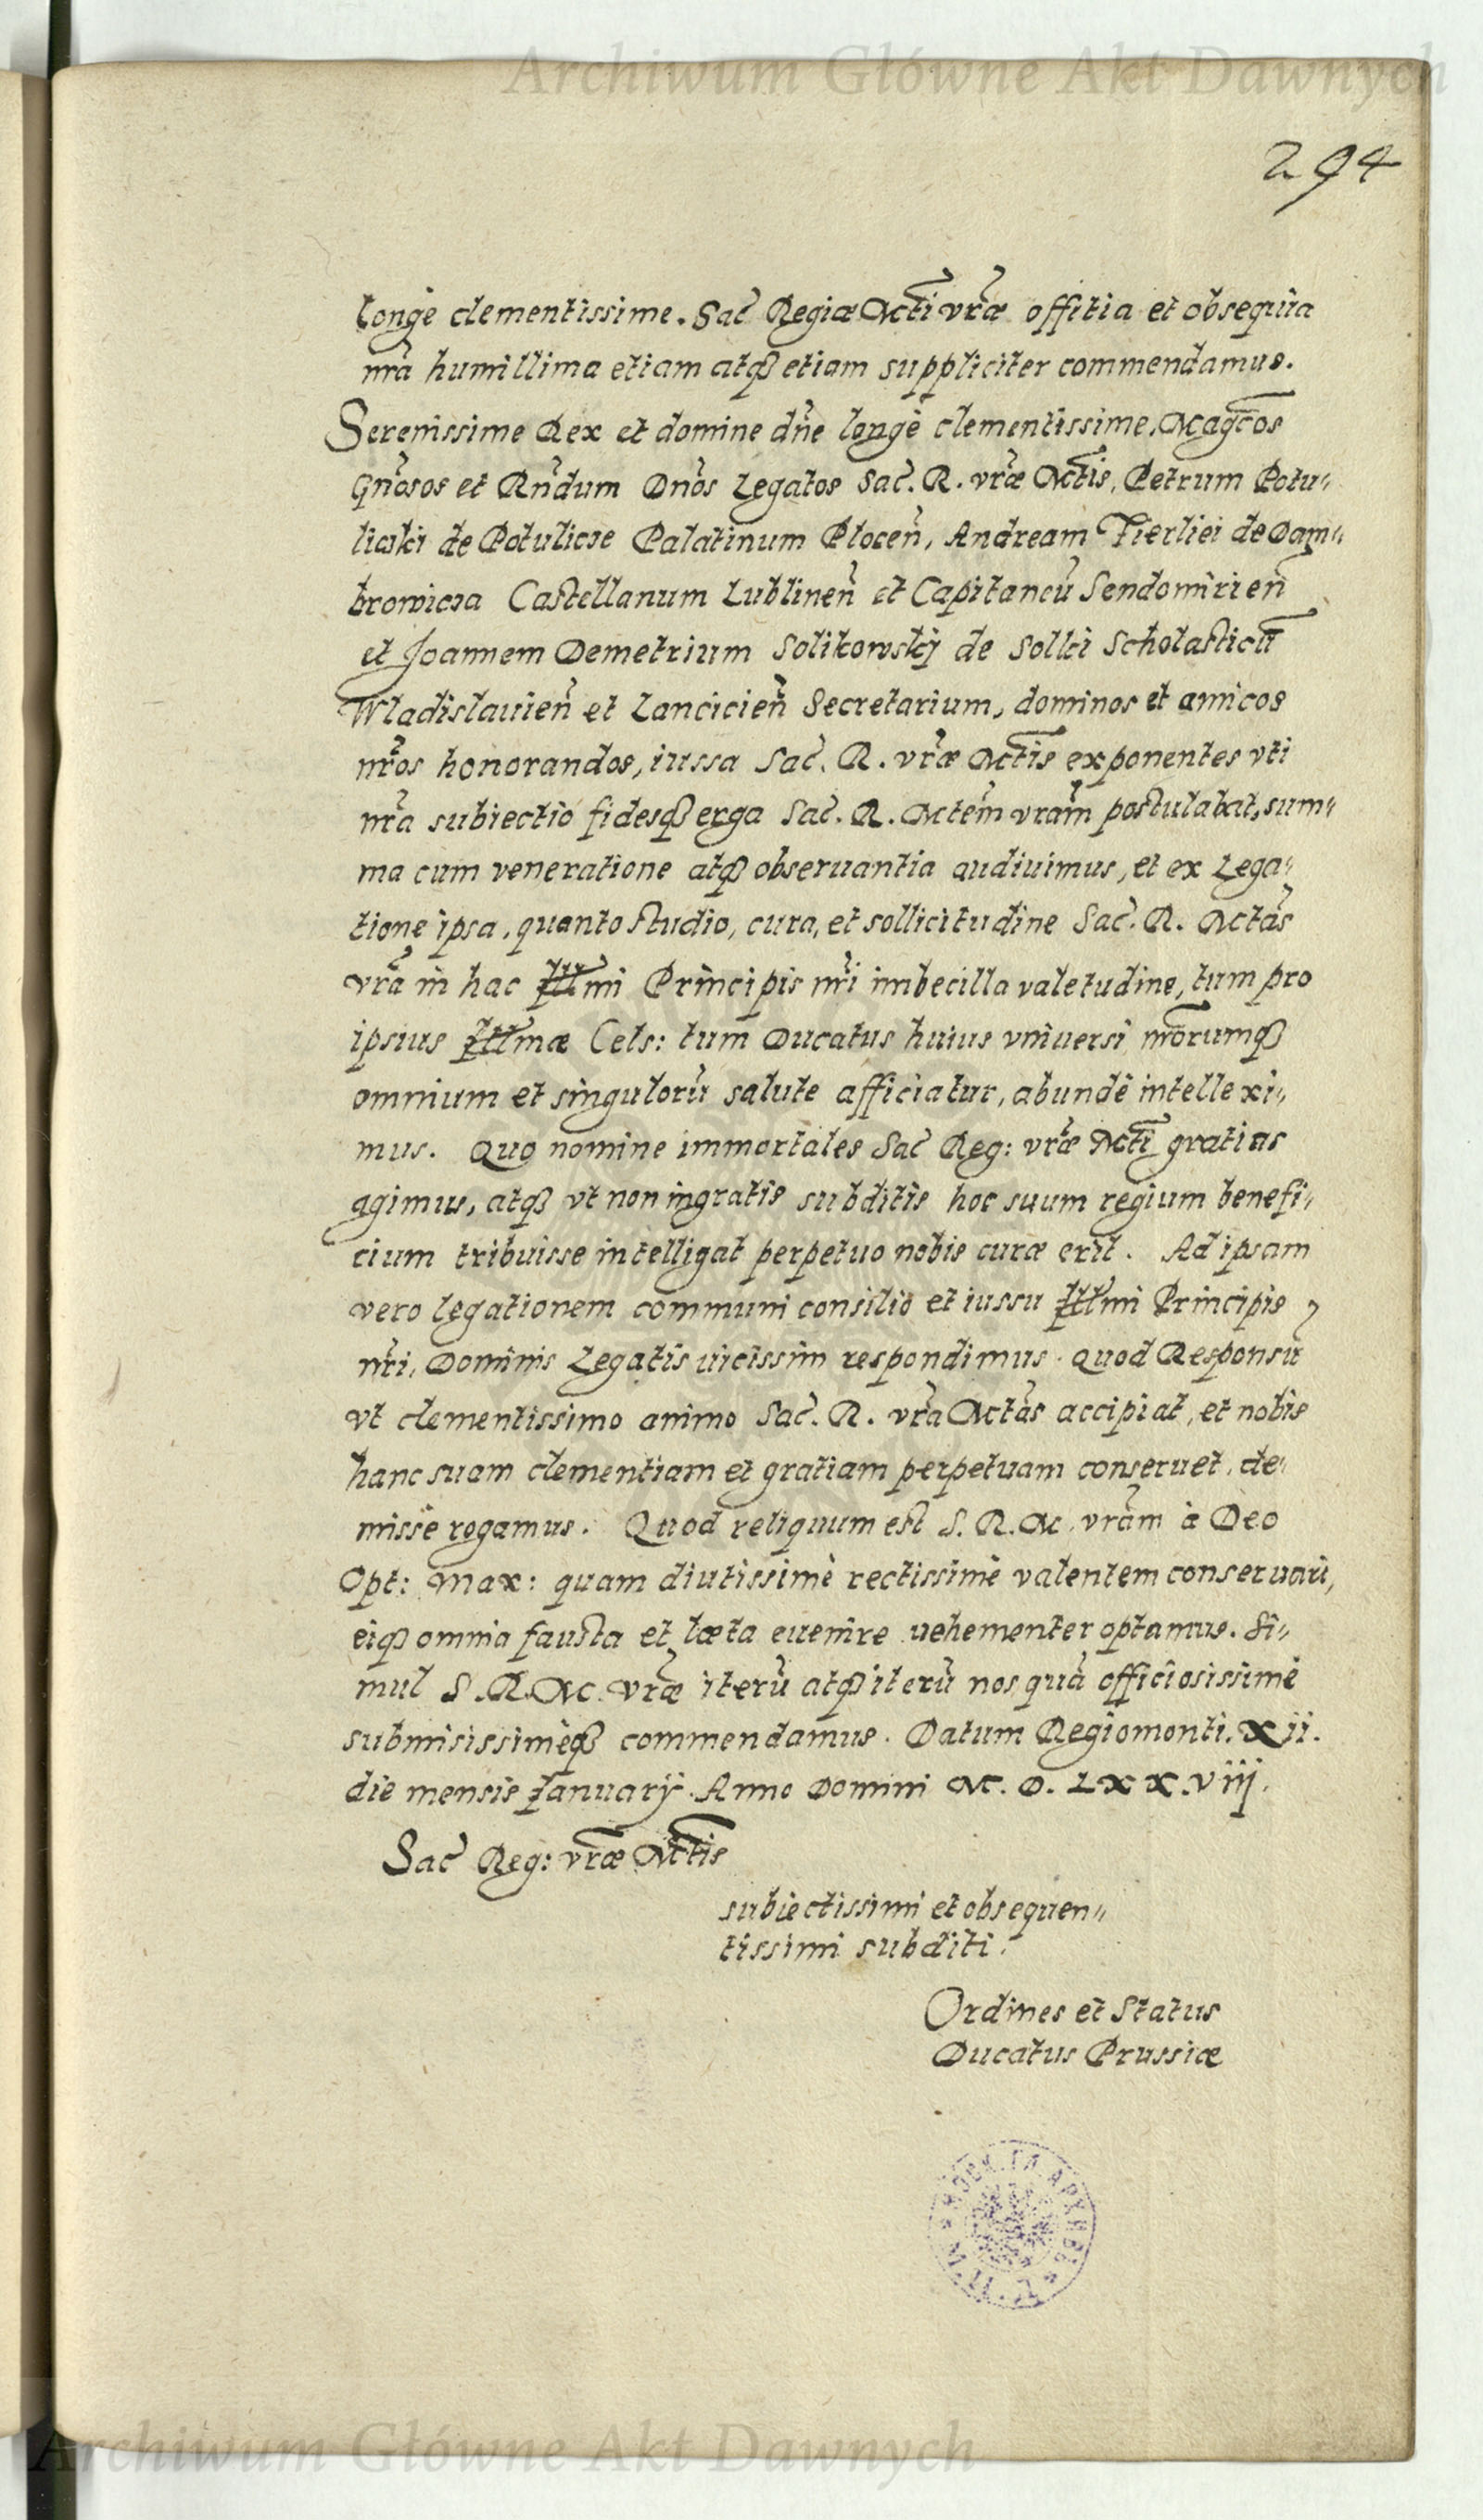 Archiwum Główne Akt Dawnych
294
longè clementissime. Sac̃ Regiæ Mcti vr̃æ offitia et obsequia
nr̃a humillima etiam atqꝫ etiam suppliciter commendamus.
Serenissime Rex et domine dñe longè clementissime, Magc̃os
Gñosos et Rñdum Dños Legatos Sac̃. R. vr̃æ Mctis, Petrum Potu„
liczki de Potulicze Palatinum Plocen̄, Andream Fierliei de Dam„
browicza Castellanum Lublinen̄ et Capitaneū Sendomirien̄
et Joannem Demetrium Solikowskij de Solki Scholasticū
Wladislauien̄ et Lancicien̄ Secretarium, dominos et amicos
nr̃os honorandos, iussa Sac̃. R. vr̃æ Mctis exponentes vti
nr̃a subiectio fidesqꝫ erga Sac̃. R. Mctem̃ vram̃ postulabat, sum„
ma cum veneratione atqꝫ obseruantia audiuimus, et ex Lega„
tione ipsa, quanto studio, cura, et sollicitudine Sac̃. R. Mctas̃
vr̃a in hac Illmi Principis nr̃i imbecilla valetudine, tum pro
ipsius Illmæ Cels: tum Ducatus huius vniuersi nr̃orumqꝫ
omnium et singulorū salute afficiatur, abundè intellexi„
mus. Quo nomine immortales Sac̃ Reg: vr̃æ Mcti gratias
agimus, atqꝫ vt non ingratis subditis hoc suum regium benefi„
cium tribuisse intelligat perpetuo nobis curæ erit. Ad ipsam
vero legationem communi consilio et iussu Illmi Principis
nr̃i, Dominis Legatis uicissim respondimus. quod Responsū
vt clementissimo animo Sac̃. R. vr̃a Mctas̃ accipiat, et nobis
hanc suam clementiam et gratiam perpetuam conseruet, de„
missè rogamus. Quod reliquum est S. R. M. vram̃ à Deo
Opt: Max: quam diutissimè rectissimè valentem conseruari,
eiqꝫ omnia fausta et læta euenire uehementer optamus. Si„
mul S. R. M. vr̃æ iterū atqꝫ iterū nos quā officiosissimè
submisissimèqꝫ commendamus. Datum Regiomonti. Xii.
die mensis Ianuarij. Anno Domini M. D. LXX.viij.
Sac̃ Reg: vr̃æ Mctis
subiectissimi et obsequen„
tissimi subditi.
Ordines et Status
Ducatus Prussiæ
Archiwum Główne Akt Dawnych